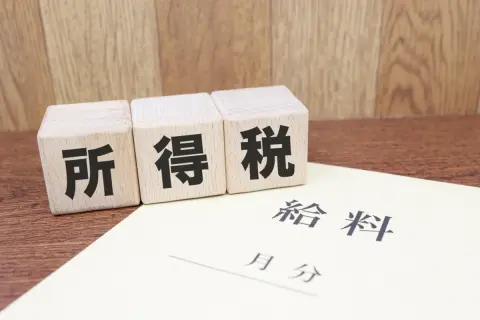 所得税
給料
月分